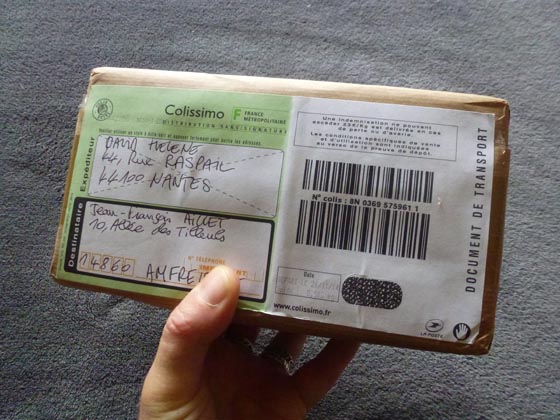 Colissimo F FRANCE
MÉTROPOLITAINE
DISTRIBUTION SANS SIGNATURE
Expéditeur
DAVID HELENE
44, Rue RASPAIL
44100 NANTES
Destinataire
Jean-François AILLET
10, Allée des Tilleuls
N° TÉLÉPHONE
14860
Une indemnisation ne pouvant
excéder 23€/kg est délivrée en cas
de perte ou d'avarie.
Les conditions spécifiques de vente
et d'utilisation sont indiquées
au verso de la preuve de dépôt.
N° colis : 8N 0369 575961 1
Date
www.colissimo.fr
LA POSTE
DOCUMENT DE TRANSPORT